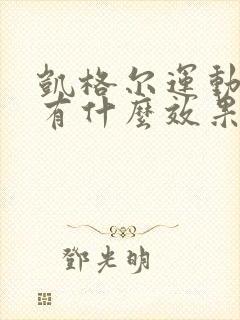 凱格尔運動
有什麼效果
鄧光明